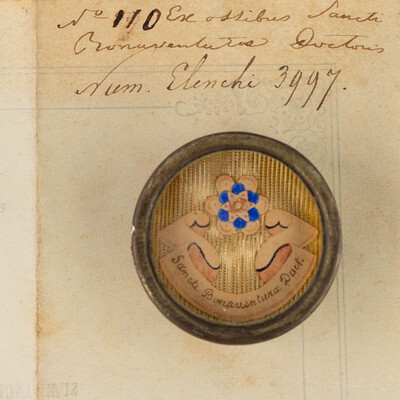 No 110 Ex ossibus Sancti
Bonaventurae Doctoris
Num. Elenchi 3997.
Sancti Bonaventura Doct.